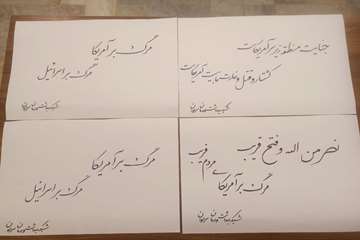 مرگ بر آمریکا
مرگ بر اسرائیل
جنایت منطقه زیر سر آمریکاست
کشتار و قتل و غارت سیاست آمریکاست
مرگ بر آمریکا
مرگ بر اسرائیل
نصر من الله و فتح قریب
مرگ بر آمریکای مردم فریب